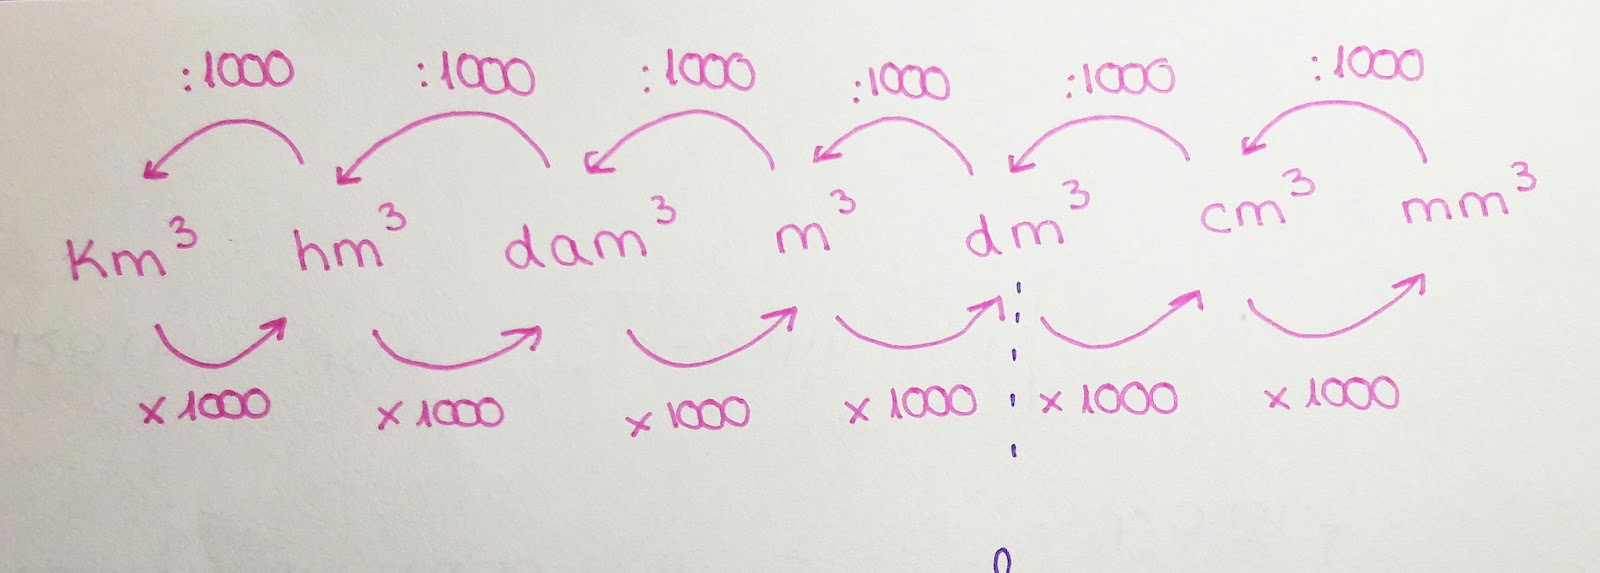 :1000 :1000 :1000 :1000 :1000 :1000
Km³ hm³ dam³ m³ dm³ cm³ mm³
x 1000 x 1000 x 1000 x 1000 x 1000 x 1000